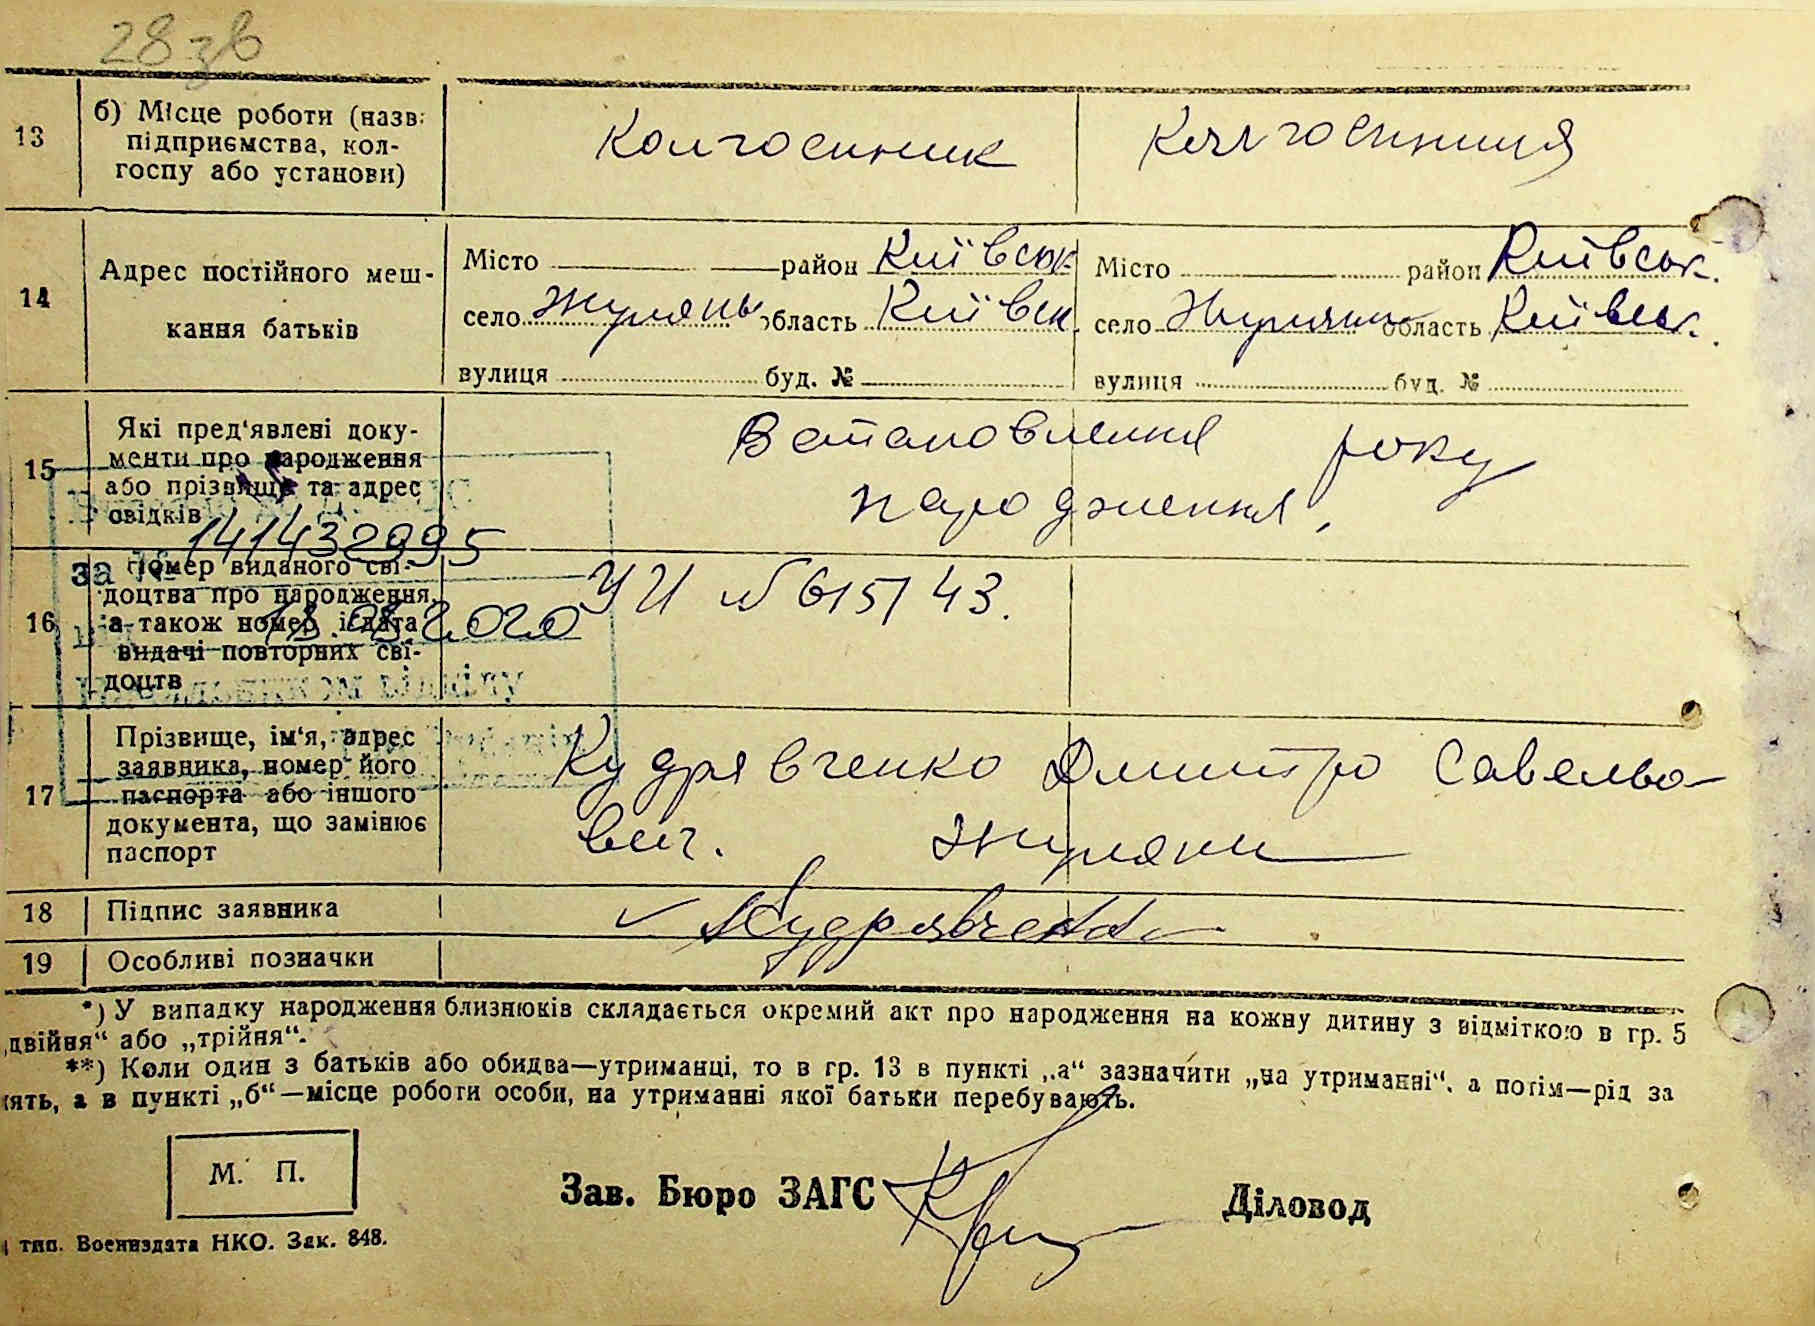 28 зв
13 б) Місце роботи (назв: Колгоспник Колгоспниця
підприємства, кол-
госпу або установи)
14 Адрес постійного меш-
кання батьків
Місто район Київськ Місто район Київськ.
село Жуляни область Київськ. село Жуляни область Київськ.
вулиця буд. № вулиця буд. №
15 Які пред'явлені доку- Встановлення року
менти про народження народження.
або прізвище та адрес
свідків
141432995
за №
16 Номер виданого сві- УИ № 615143.
доцтва про народження,
а також номер і дата
видачі повторних сві-
доцтв
2020
відділу
17 Прізвище, ім'я, адрес Кудрявченко Дмитро Савельо-
заявника, номер його вич. Жуляни
паспорта або іншого
документа, що замінює
паспорт
18 Підпис заявника Кудрявченко
19 Особливі позначки
*) У випадку народження близнюків складається окремий акт про народження на кожну дитину з відміткою в гр. 5
„двійня“ або „трійня“.
**) Коли один з батьків або обидва—утриманці, то в гр. 13 в пункті „а“ зазначити „на утриманні“, а потім—рід за
нять, а в пункті „б“—місце роботи особи, на утриманні якої батьки перебувають.
М. П.
Зав. Бюро ЗАГС Діловод
тип. Воениздата НКО. Зак. 848.